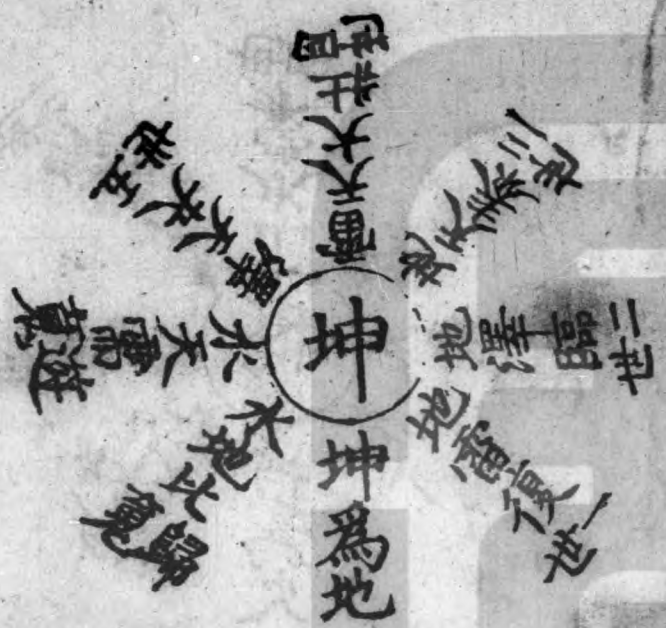 坤
坤爲地
地雷復一世
地澤臨二世
地天泰三世
雷天大壯四世
澤天夬五世
水天需遊魂
水地比歸魂